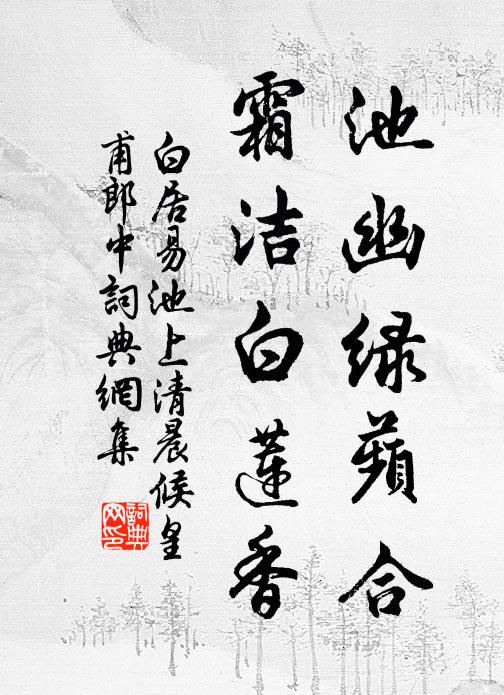 池幽绿蘋合
霜洁白莲香
白居易池上清晨候皇
甫郎中詞典網集
詞典
网印